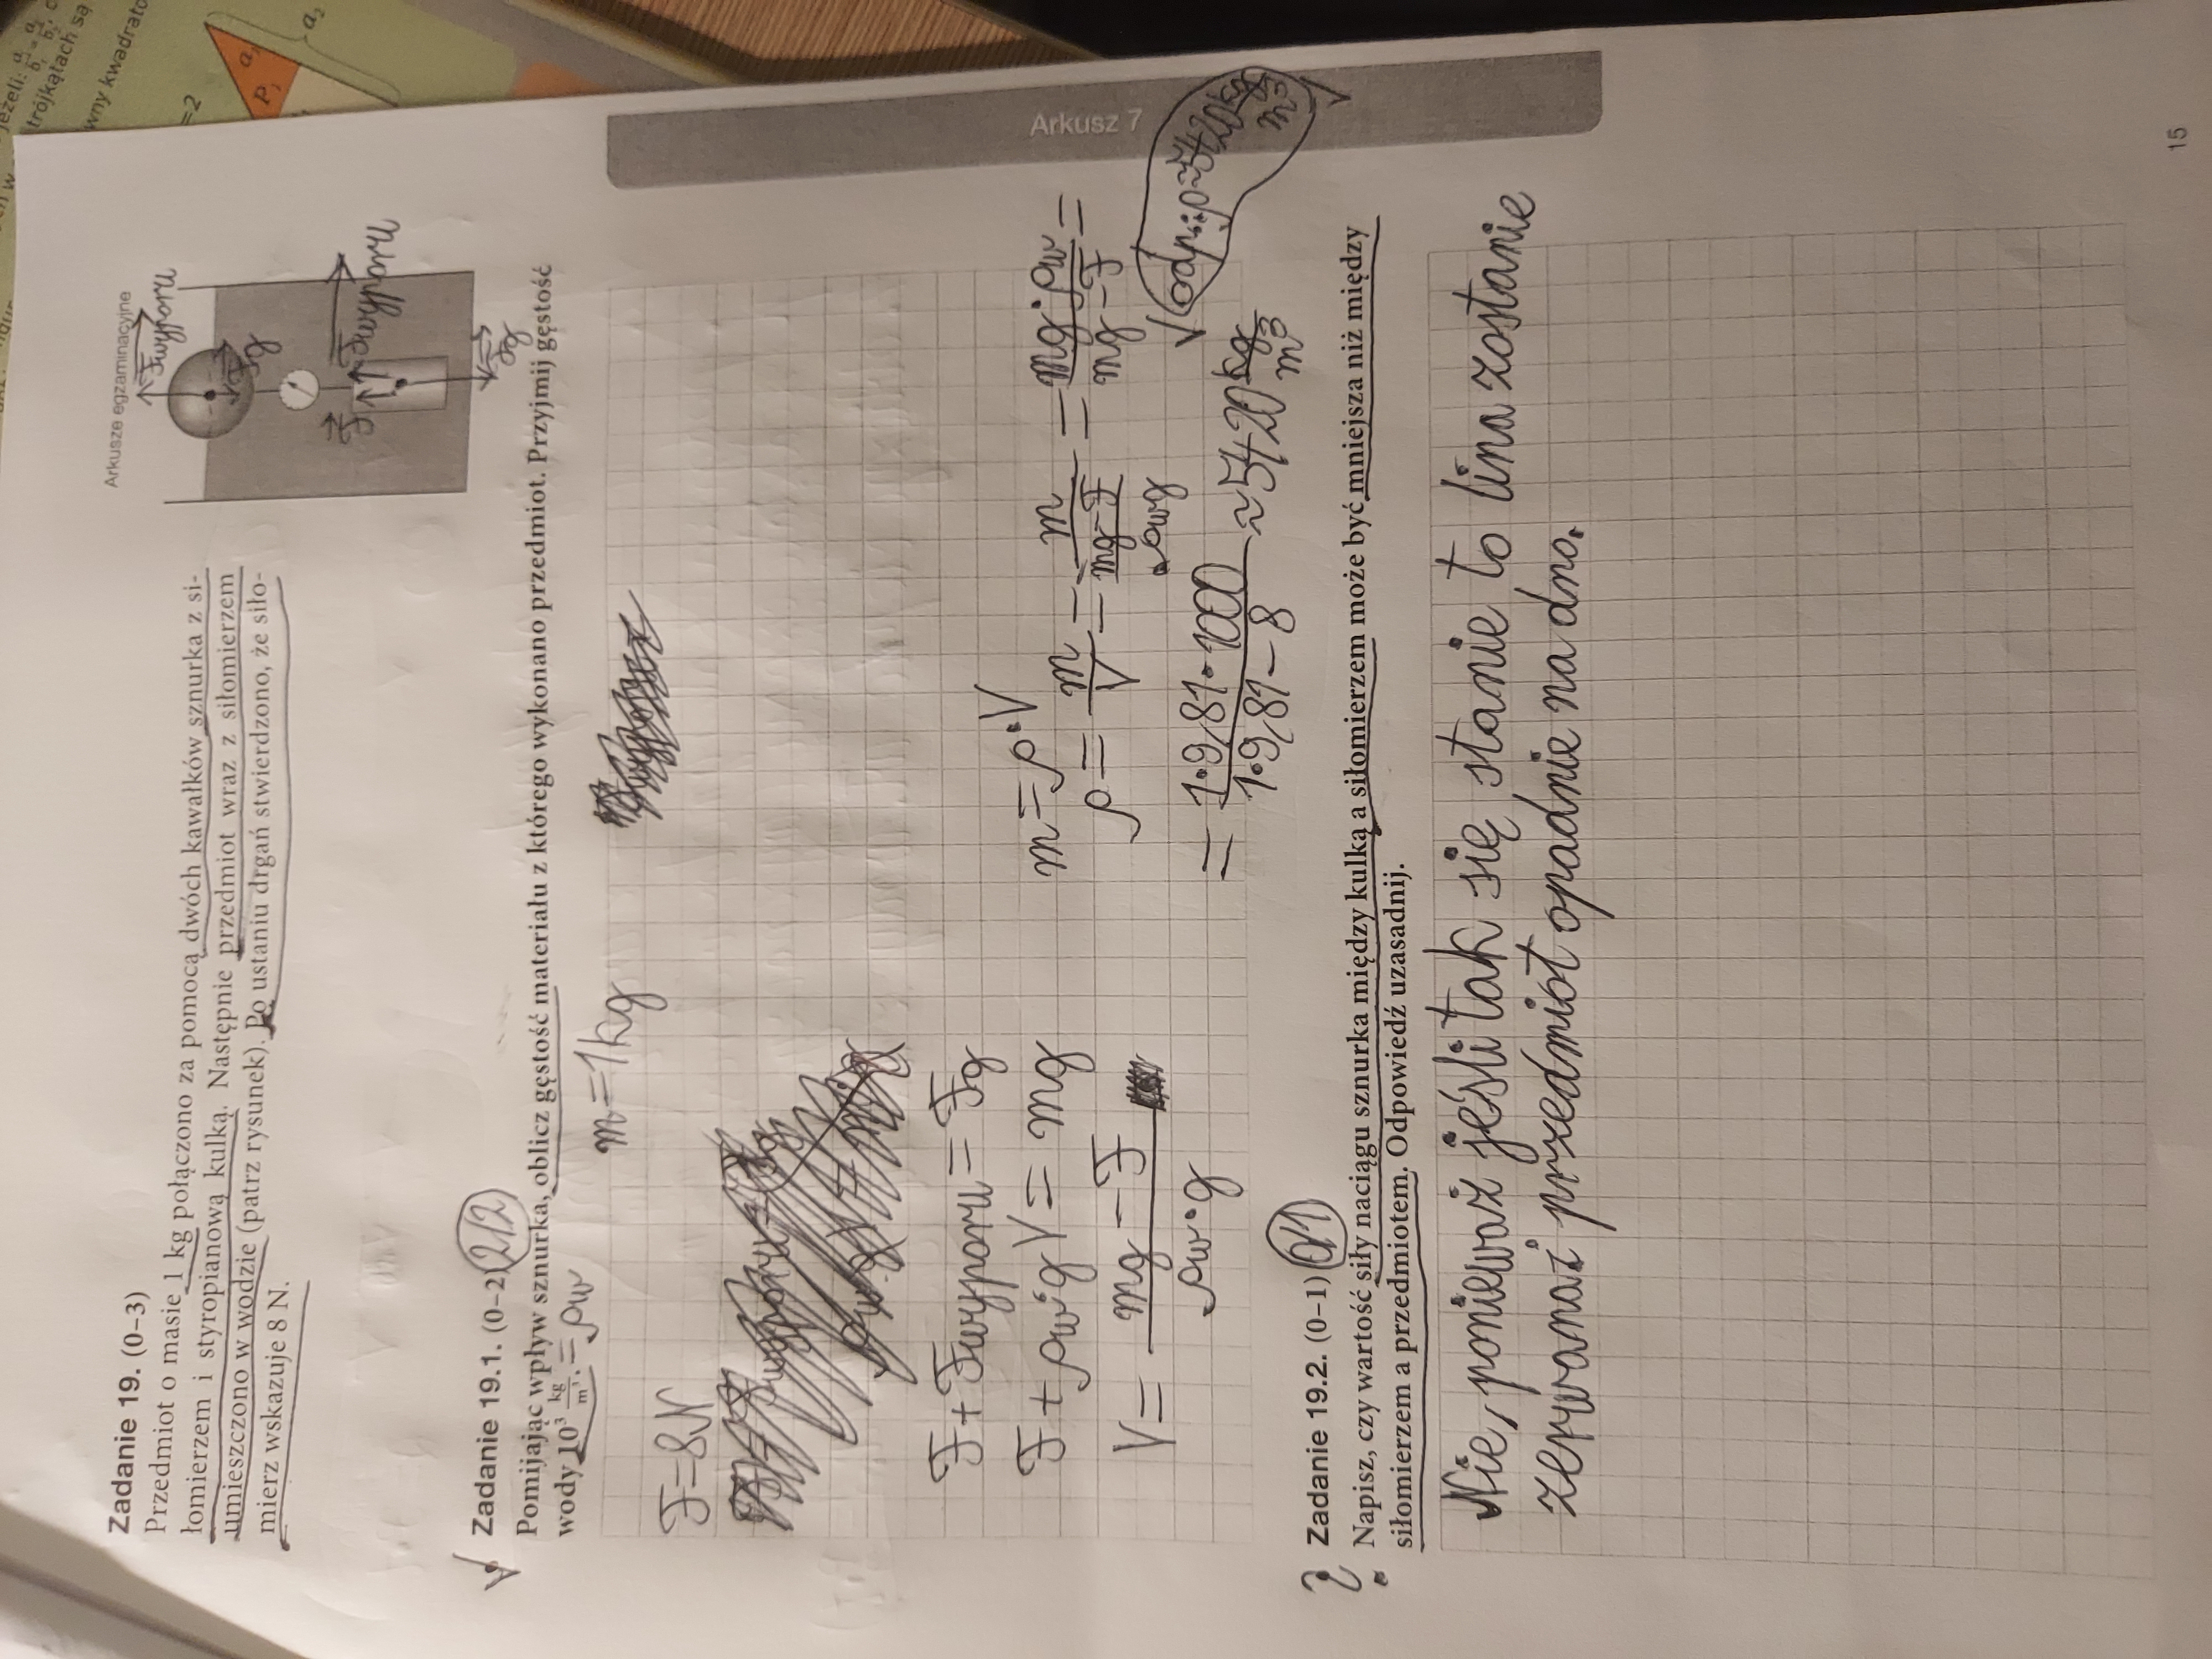 Arkusze egzaminacyjne
Zadanie 19. (0–3)
Przedmiot o masie 1 kg połączono za pomocą dwóch kawałków sznurka z si-
łomierzem i styropianową kulką. Następnie przedmiot wraz z siłomierzem
umieszczono w wodzie (patrz rysunek). Po ustaniu drgań stwierdzono, że siło-
mierz wskazuje 8 N.
Fwyporu
Fg
F
Fwyporu
Fg
Zadanie 19.1. (0–2) 2/2
Pomijając wpływ sznurka, oblicz gęstość materiału z którego wykonano przedmiot. Przyjmij gęstość
wody 10³ kg/m³. = ρw
m = 1kg
F = 8N
F + Fwyporu = Fg
F + ρw·g V = mg
V = mg - F / ρw·g
m = ρ·V
ρ = m/V = m / (mg-F / ρwg) = mg·ρw / mg-F =
= 1·9,81·1000 / 1·9,81-8 ≈ 5420 kg/m³
odp.: ρ≈5420 kg/m³
Arkusz 7
Zadanie 19.2. (0–1) 0/1
Napisz, czy wartość siły naciągu sznurka między kulką a siłomierzem może być mniejsza niż między
siłomierzem a przedmiotem. Odpowiedź uzasadnij.
Nie, ponieważ jeśli tak się stanie to lina zostanie
zerwana i przedmiot opadnie na dno.
15